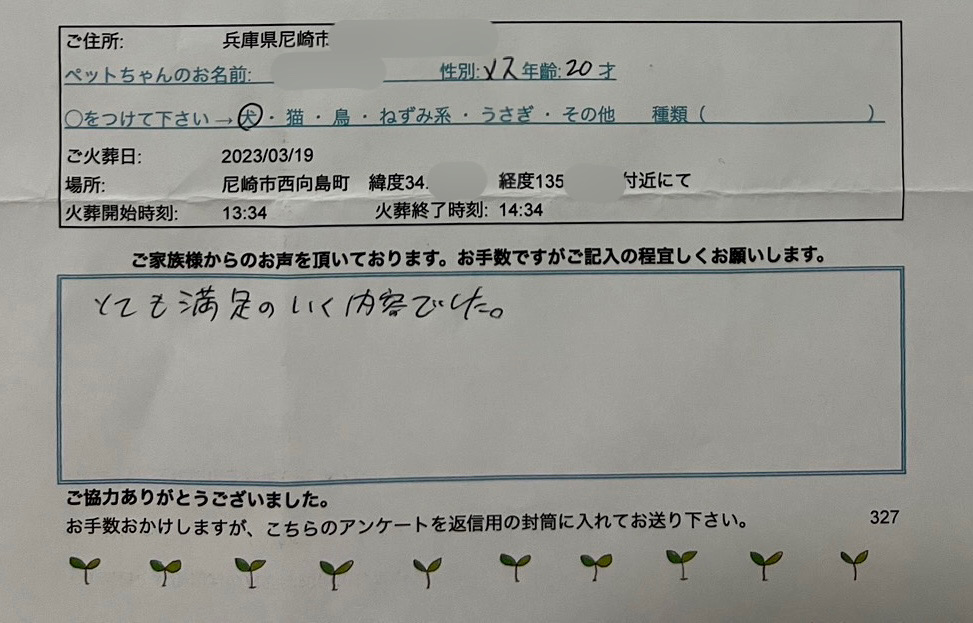 ご住所: 兵庫県尼崎市
ペットちゃんのお名前: 性別:メス 年齢:20才
○をつけて下さい→犬・猫・鳥・ねずみ系・うさぎ・その他 種類( )
ご火葬日: 2023/03/19
場所: 尼崎市西向島町 緯度34. 経度135 付近にて
火葬開始時刻: 13:34 火葬終了時刻: 14:34
ご家族様からのお声を頂いております。お手数ですがご記入の程宜しくお願いします。
とても満足のいく内容でした。
ご協力ありがとうございました。
お手数おかけしますが、こちらのアンケートを返信用の封筒に入れてお送り下さい。 327